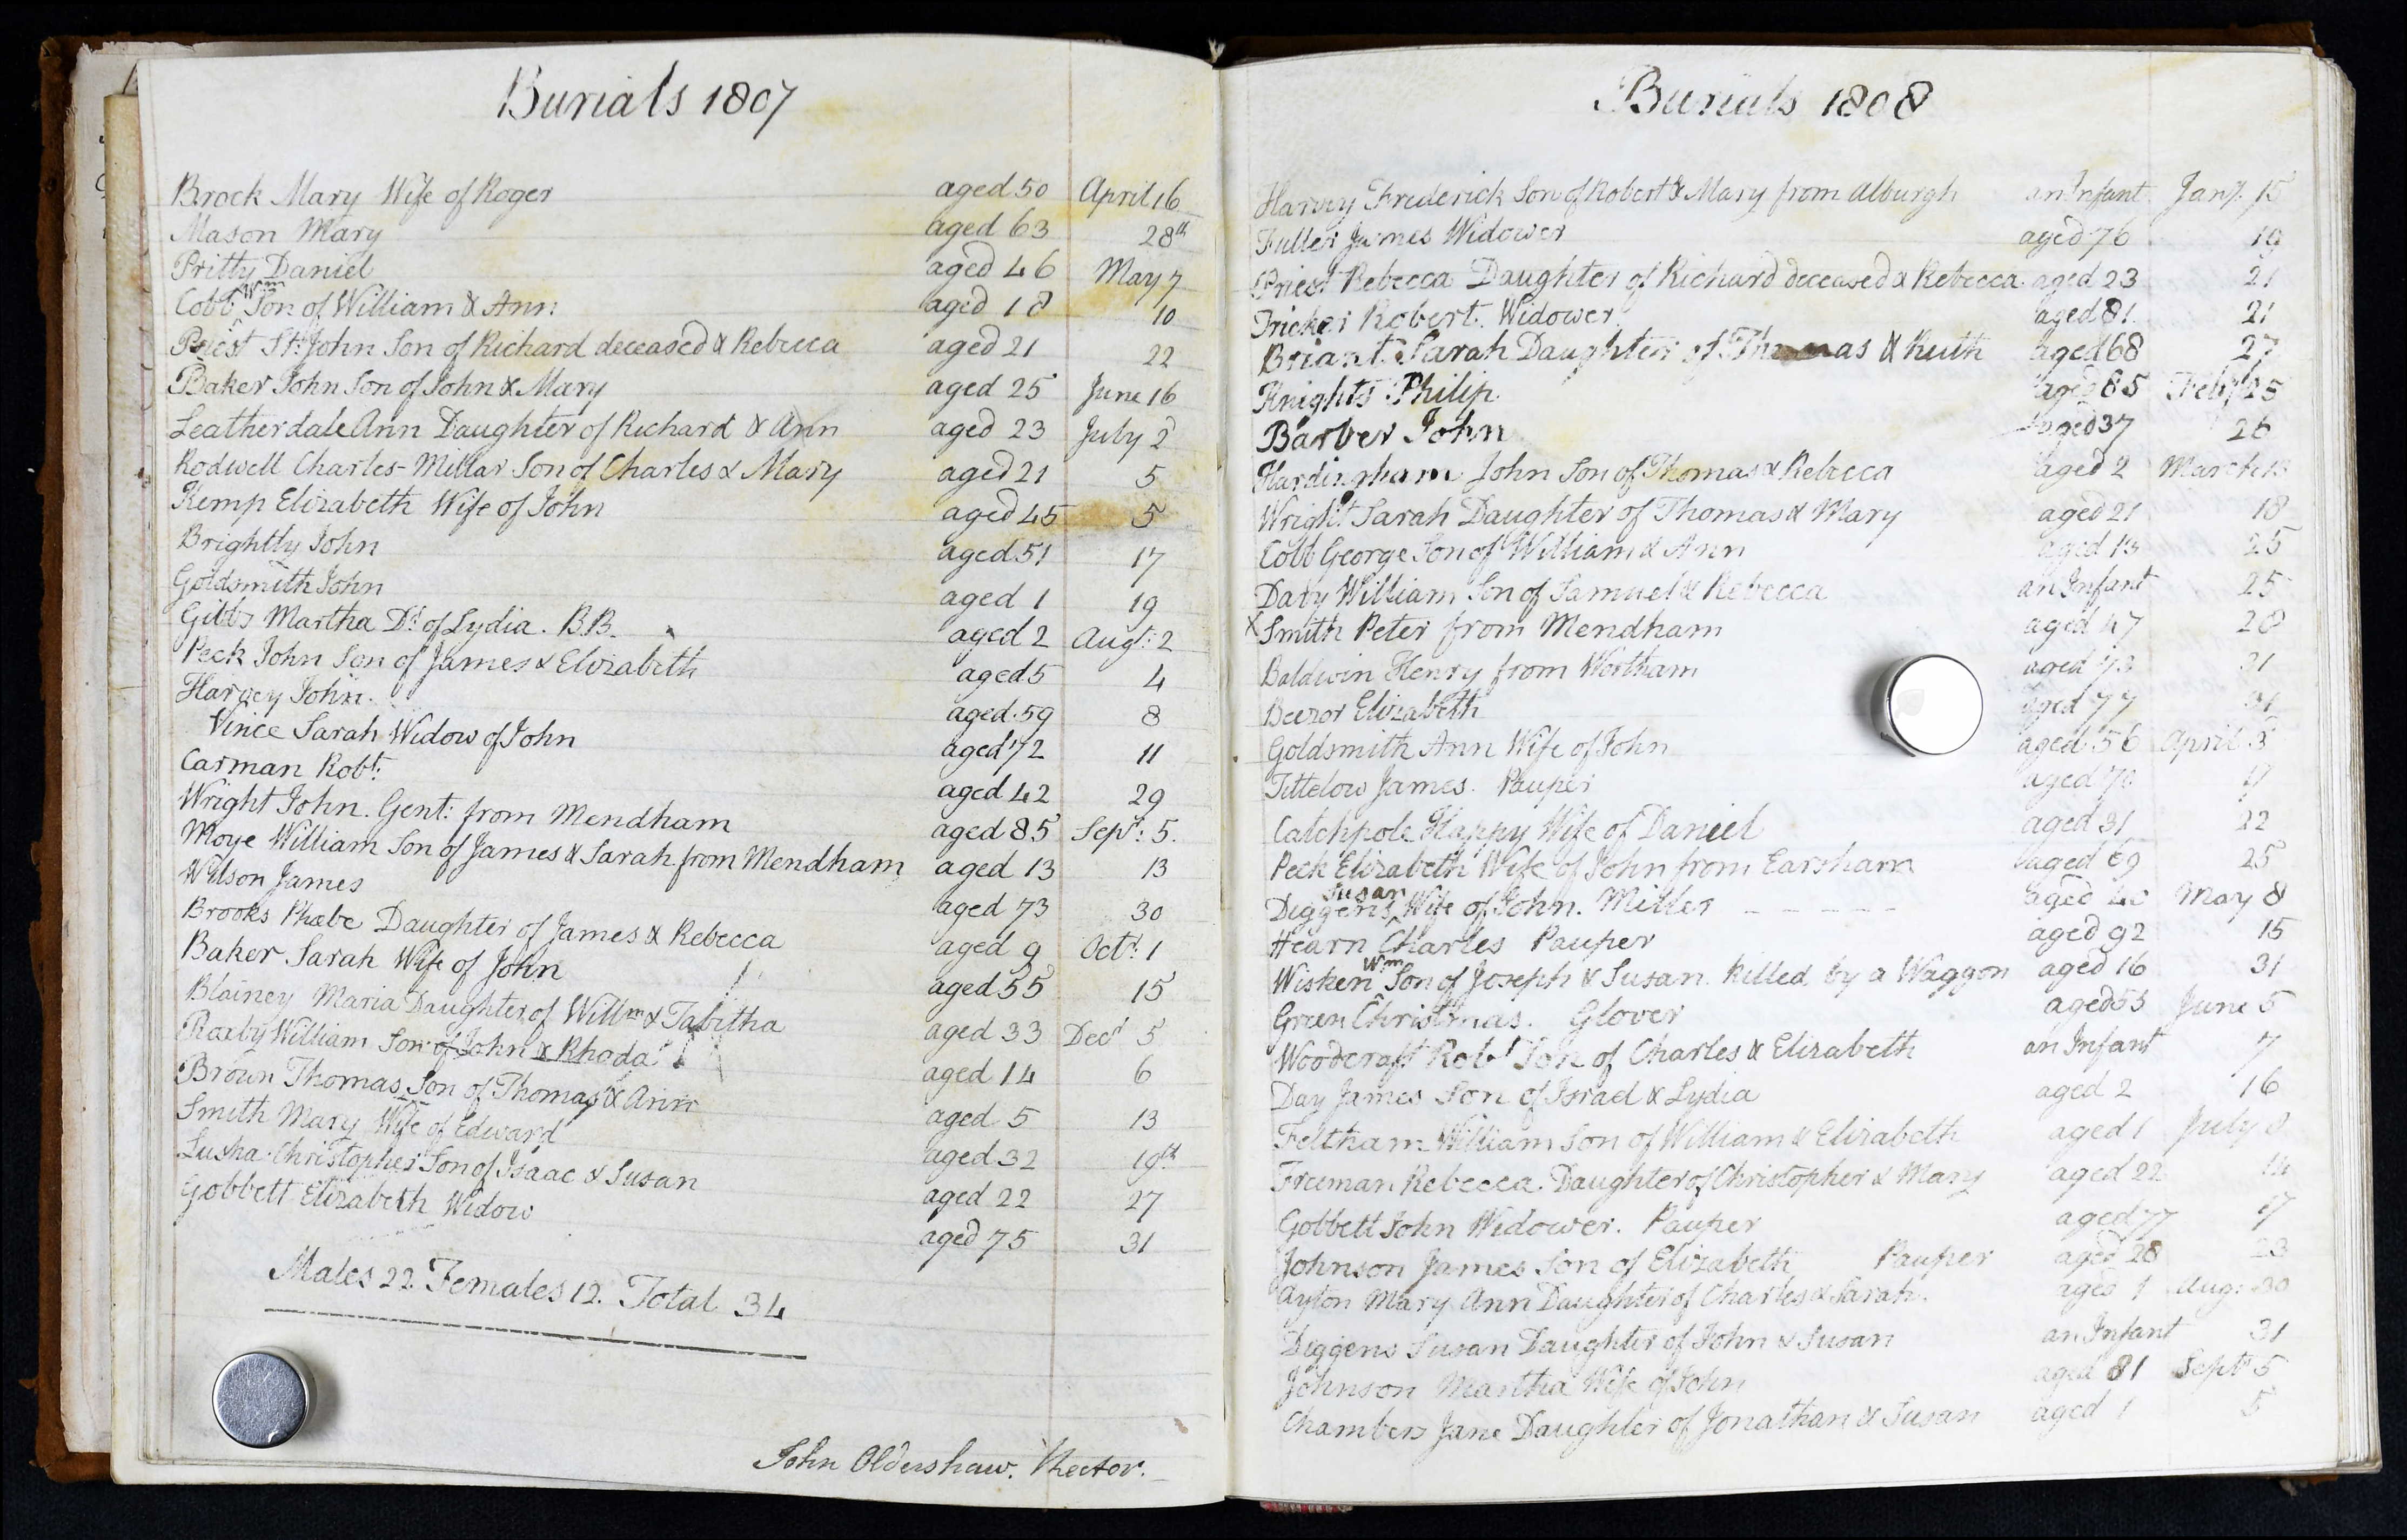 Burials 1807
Brock Mary Wife of Roger aged 50 April 16
Mason Mary aged 63 28th
Pritty Daniel aged 46 May 7
Cobb Wm Son of William & Ann aged 18 10
Priest St John Son of Richard deceased & Rebecca aged 21 22
Baker John Son of John & Mary aged 25 June 16
Leatherdale Ann Daughter of Richard & Ann aged 23 July 2
Rodwell Charles-Millar Son of Charles & Mary aged 21 5
Kemp Elizabeth Wife of John aged 45 5
Brightly John aged 51 17
Goldsmith John aged 1 19
Gibbs Martha Dr of Lydia. B.B. aged 2 Augt: 2
Peck John Son of James & Elizabeth aged 5 4
Harvey John. aged 59 8
Vince Sarah Widow of John aged 72 11
Carman Robt: aged 42 29
Wright John. Gent: from Mendham aged 85 Sept: 5.
Moye William Son of James & Sarah from Mendham aged 13 13
Wilson James aged 73 30
Brooks Phœbe Daughter of James & Rebecca aged 9 Octr. 1
Baker Sarah Wife of John aged 55 15
Blainey Maria Daughter of Willm & Tabitha aged 33 Decr 5
William Son of John & Rhoda aged 14 6
Brown Thomas Son of Thomas & Ann aged 5 13
Smith Mary Wife of Edward aged 32 19th
Lusha Christopher Son of Isaac & Susan aged 22 27
Gobbett Elizabeth Widow aged 75 31
Males 22. Females 12. Total 34
John Oldershaw. Rector.
Burials 1808
Harvey Frederick Son of Robert & Mary from Alburgh an Infant Jany. 15
Fuller James Widower aged 76 19
Priest Rebecca Daughter of Richard deceased & Rebecca aged 23 21
Tricker Robert. Widower aged 81 21
Briant Sarah Daughter of Thomas & Ruth aged 68 27
Knights Philip aged 85
Barber John aged 37 26
Hardingham John Son of Thomas & Rebecca aged 2 March
Wright Sarah Daughter of Thomas & Mary aged 21 18
Cobb George Son of William & Ann aged 25
Davy William Son of Samuel & Rebecca an Infant 25
x Smith Peter from Mendham aged 47 28
Baldwin Henry from Wortham aged 73 31
Beezor Elizabeth aged 77 31
Goldsmith Ann Wife of John aged 56 April 3
Tittelow James. Pauper aged 70 17
Catchpole Happy Wife of Daniel aged 31 22
Peck Elizabeth Wife of John from Earsham aged 69 25
Diggens Susan Wife of John. Miller aged 40 May 8
Hearn Charles Pauper aged 92 15
Wisken Wm Son of Joseph & Susan. Killed by a Waggon aged 16 31
Green Christmas. Glover aged June 5
Woodcraft Robt Son of Charles & Elizabeth an Infant 7
Day James Son of Israel & Lydia aged 2 16
Feltham William Son of William & Elizabeth aged 1 July
Freeman Rebecca Daughter of Christopher & Mary aged 22 14
Gobbett John Widower. Pauper aged 77 17
Johnson James Son of Elizabeth Pauper aged 28 23
Ayton Mary Ann Daughter of Charles & Sarah. aged 1 Aug: 30
Diggens Susan Daughter of John & Susan an Infant 31
Johnson Martha Wife of John aged 81 Septr 5
Chambers Jane Daughter of Jonathan & Susan aged 1 5